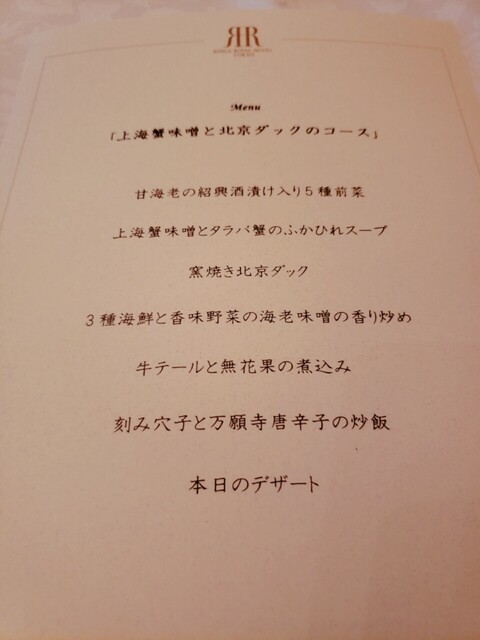 RR
RIHGA ROYAL HOTEL
TOKYO
Menu
「上海蟹味噌と北京ダックのコース」
甘海老の紹興酒漬け入り5種前菜
上海蟹味噌とタラバ蟹のふかひれスープ
窯焼き北京ダック
3種海鮮と香味野菜の海老味噌の香り炒め
牛テールと無花果の煮込み
刻み穴子と万願寺唐辛子の炒飯
本日のデザート